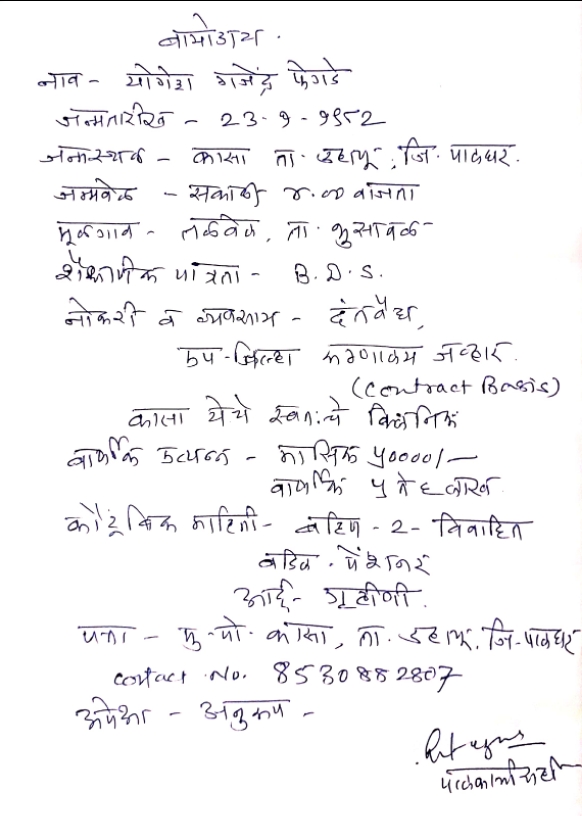 बायोडाटा.
नाव - योगेश गजेंद्र फेगडे
जन्मतारीख - 23-9-1982
जन्मस्थळ - कासा ता. डहाणू, जि. पालघर.
जन्मवेळ - सकाळी ४.०० वाजता
मूळगाव - तळवेल, ता. भुसावळ
शैक्षणीक पात्रता - B.D.S.
नोकरी व व्यवसाय - दंतवैद्य,
उप-जिल्हा रुग्णालय जव्हार.
(Contract Basis)
कासा येथे स्वतःचे क्लिनिक
वार्षीक उत्पन्न - मासिक ५००००/-
वार्षीक ५ ते ६ लाख
कौटूंबिक माहिती - बहिण - 2 - विवाहित
वडिल. पेंशनर
आई - गृहीणी.
पत्ता - मु.पो. कासा, ता. डहाणू, जि. पालघर
contact No. 8530882807
अपेक्षा - अनुरूप -
पालकाची सही